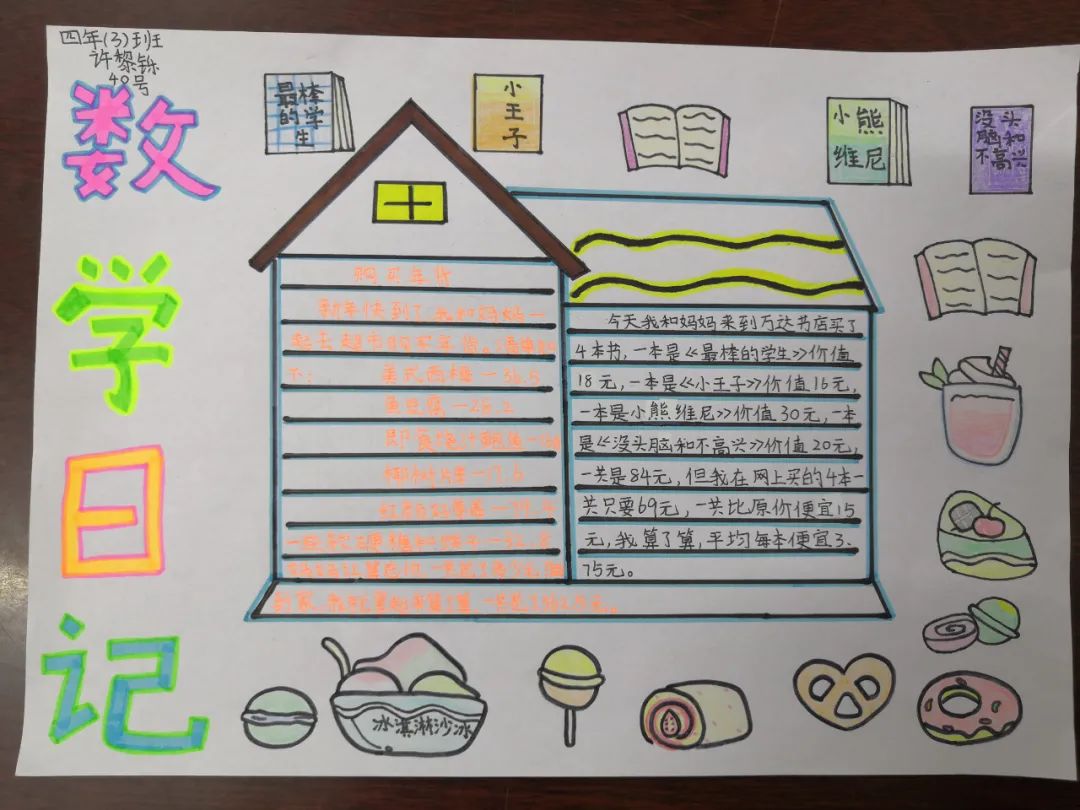 四年(3)班
许黎铄
40号
数
学
日
记
最棒
的学
生
小
王
子
小熊
维尼
没头
脑和
不高兴
购买年货
新年快到了,我和妈妈一
起去超市购买年货。清单如
下: 美式西梅—36.5
鱼豆腐—26.2
即食
椰树—17.6
—79.4
—32.8
今天我和妈妈来到万达书店买了
4本书,一本是《最棒的学生》价值
18元,一本是《小王子》价值16元,
一本是小熊维尼》价值30元,一本
是《没头脑和不高兴》价值20元,
一共是84元,但我在网上买的4本一
共只要69元,一共比原价便宜15
元,我算了算,平均每本便宜3.
75元。
冰淇淋沙冰